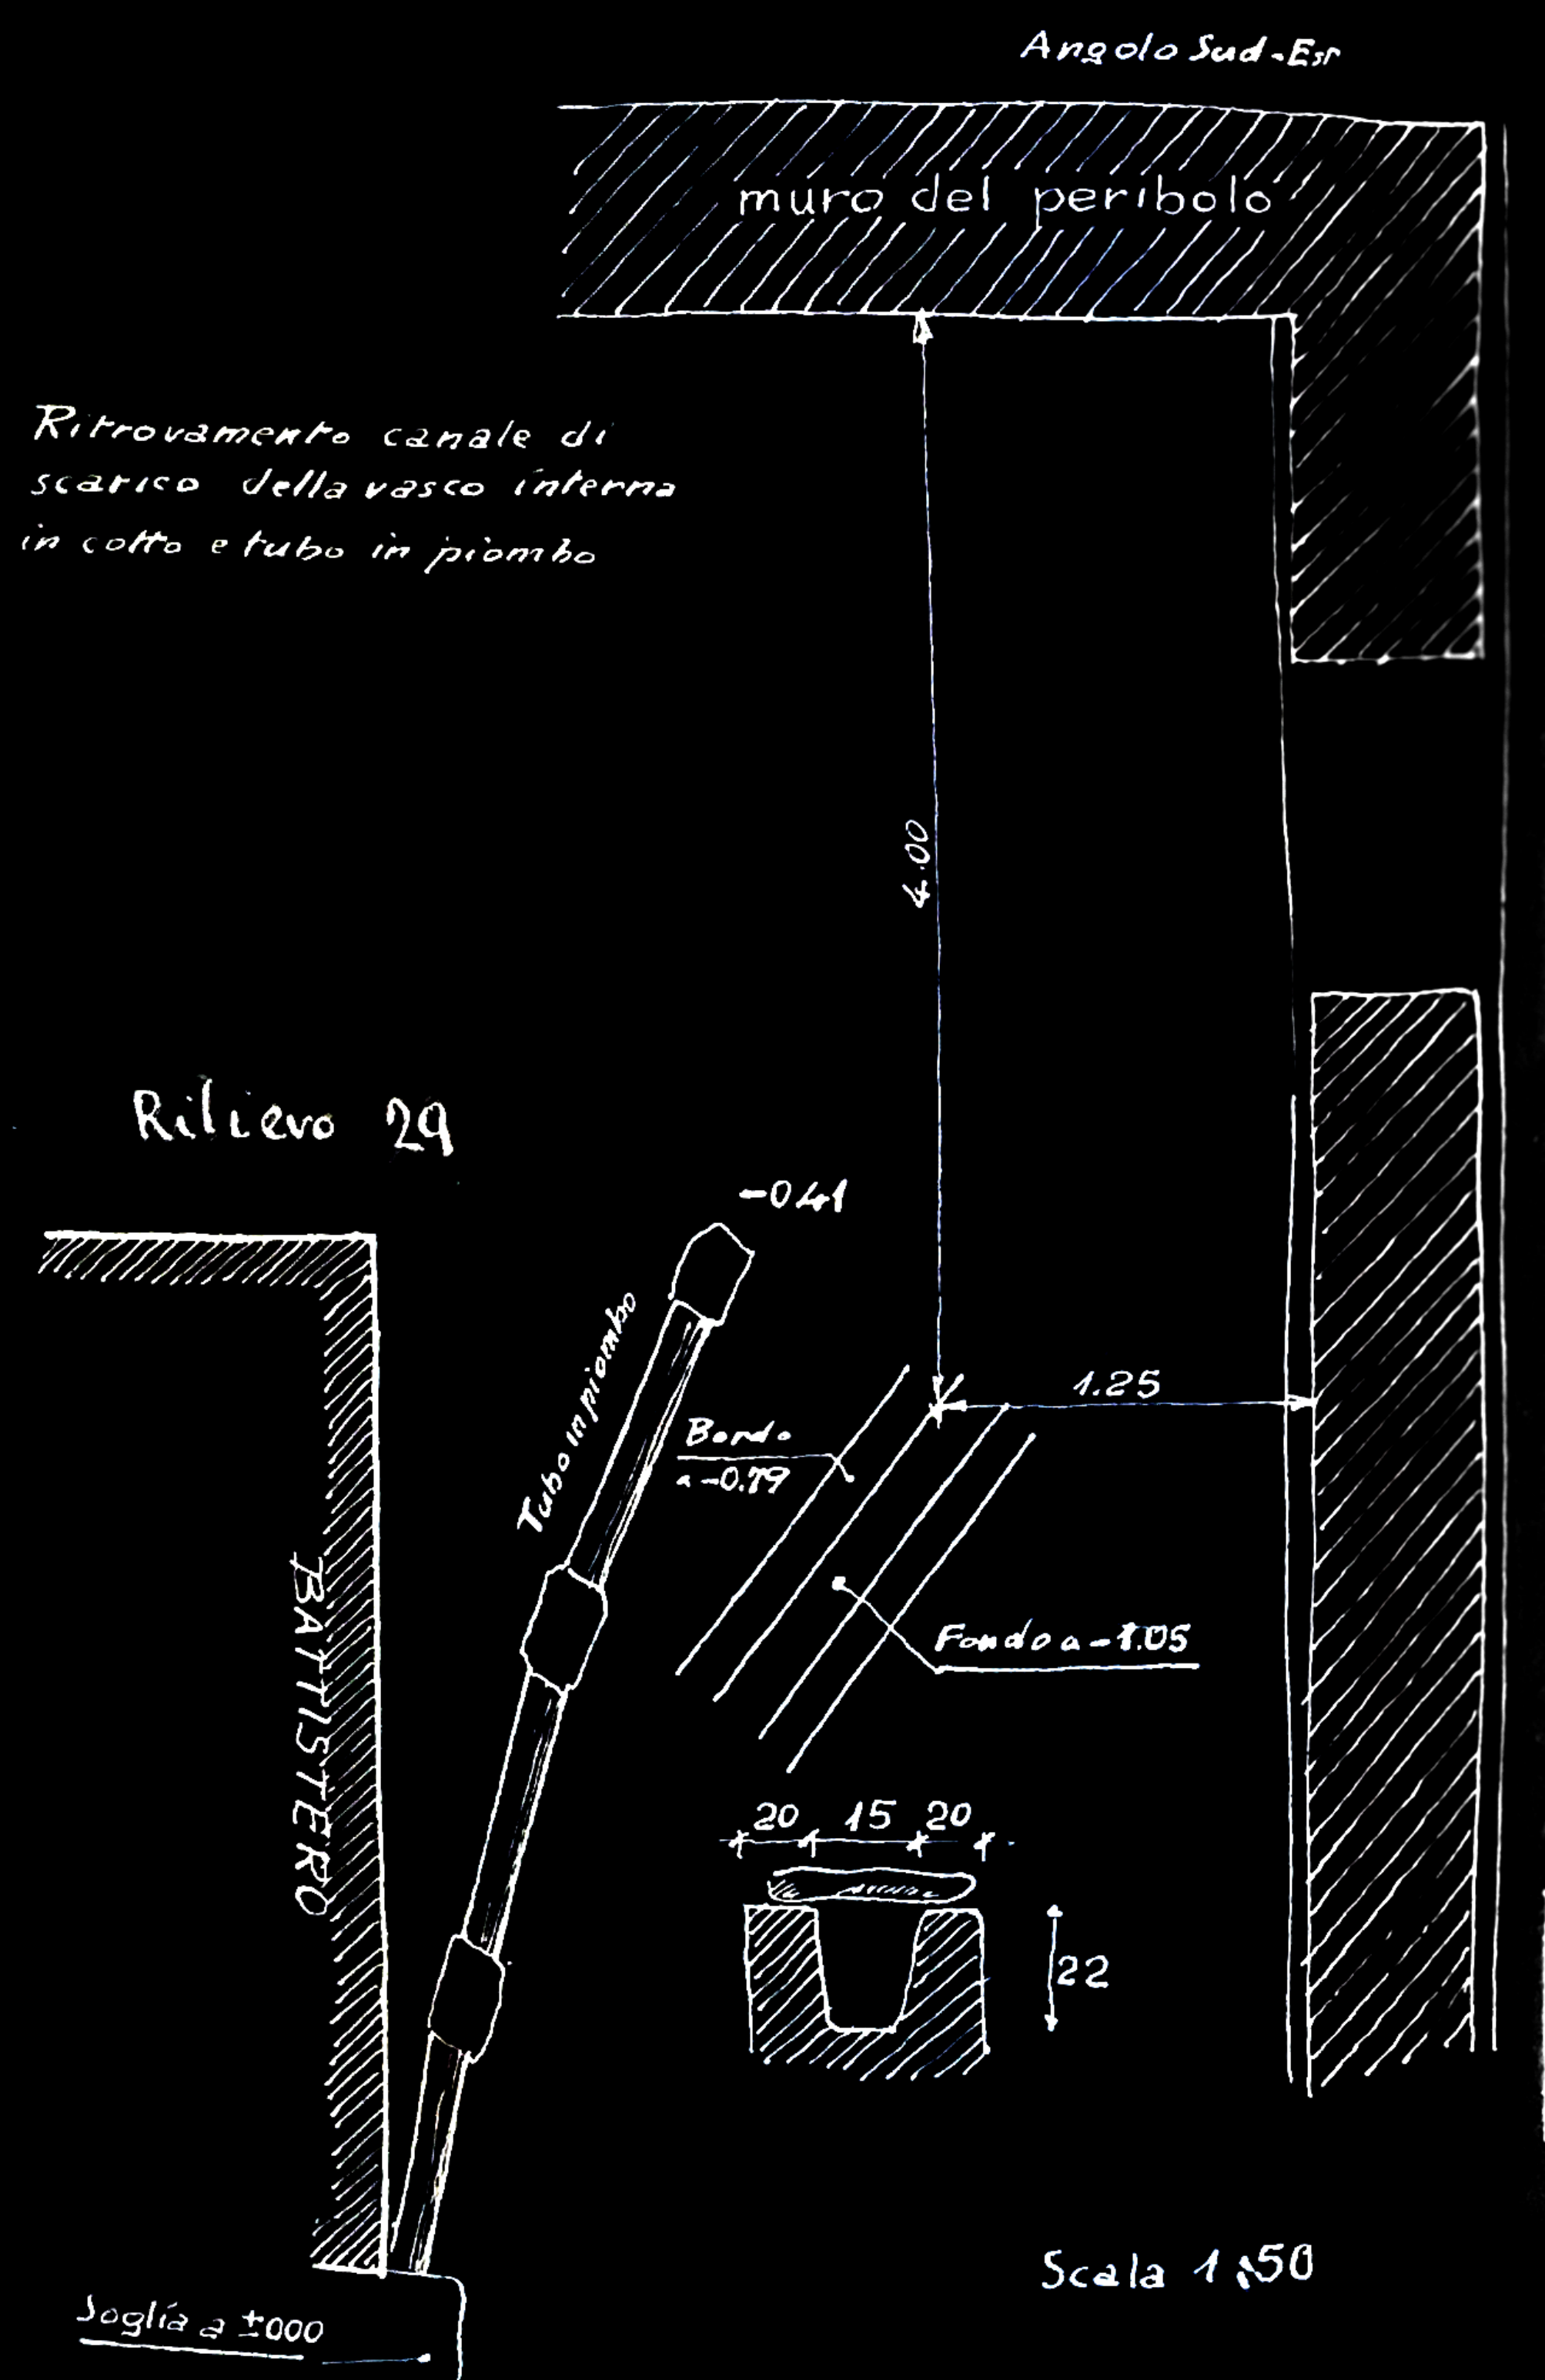 Angolo Sud-Est
muro del peribolo
Ritrovamento canale di
scarico della vasco interna
in cotto e tubo in piombo
4.00
Rilievo 29
-041
Tubo in piombo
1.25
Bordo
a -0.79
BATTISTERO
Fondo a -1.05
20 15 20
22
Scala 1:50
Soglia a ±000